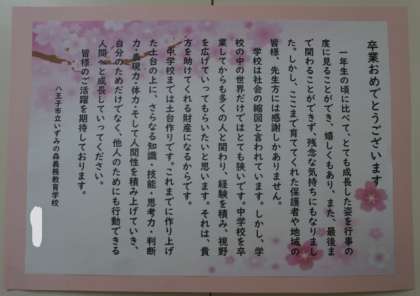 卒業おめでとうございます
一年生の頃に比べて、とても成長した姿を行事の
度に見ることができ、嬉しくもあり、また、最後ま
で関わることができず、残念な気持ちにもなりまし
た。しかし、ここまで育ててくれた保護者や地域の
皆様、先生方には感謝しかありません。
学校は社会の縮図と言われています。しかし、学
校の中の世界だけではとても狭いです。中学校を卒
業してからも多くの人と関わり、経験を積み、視野
を広げていってもらいたいと思います。それは、貴
方を助けてくれる財産になるからです。
中学校までは土台作りです。これまでに作り上げ
た土台の上に、さらなる知識・技能・思考力・判断
力・表現力・体力・そして人間性を積み上げていき、
自分のためだけでなく、他人のためにも行動できる
人間へと成長していってください。
皆様のご活躍を期待しております。
八王子市立いずみの森義務教育学校